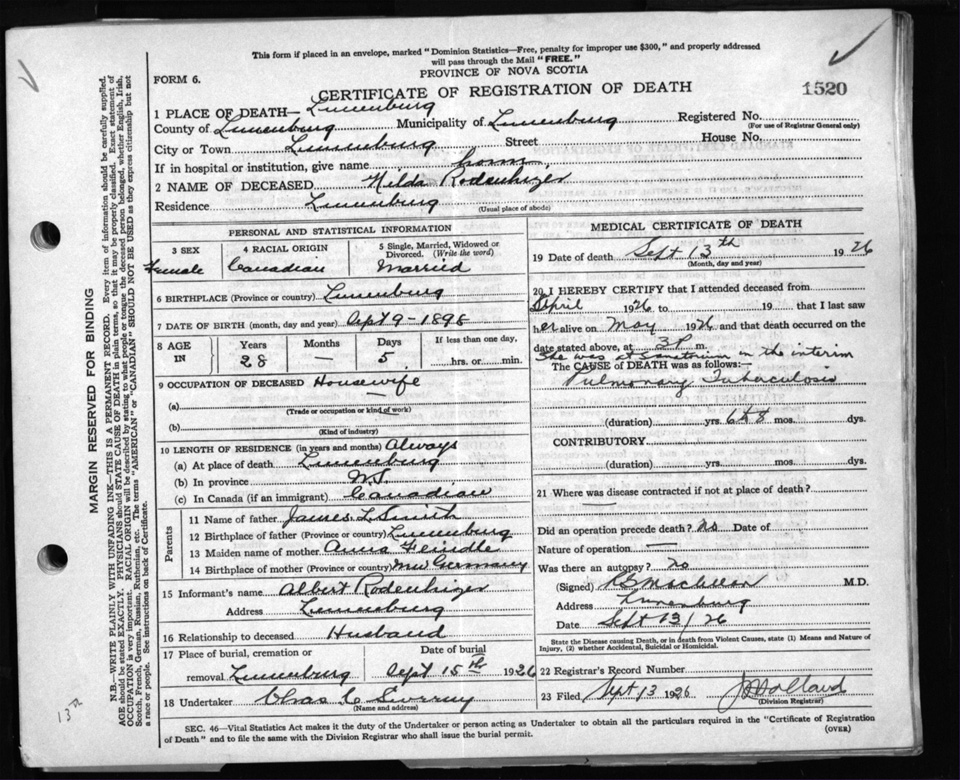 This form if placed in an envelope, marked "Dominion Statistics—Free, penalty for improper use $300," and properly addressed
will pass through the Mail "FREE."
PROVINCE OF NOVA SCOTIA
FORM 6.
CERTIFICATE OF REGISTRATION OF DEATH
1520
1 PLACE OF DEATH— Lunenburg
County of Lunenburg Municipality of Lunenburg Registered No.
(For use of Registrar General only)
City or Town Lunenburg Street House No.
If in hospital or institution, give name home
2 NAME OF DECEASED Hilda Rodenhizer
Residence Lunenburg
(Usual place of abode)
PERSONAL AND STATISTICAL INFORMATION
3 SEX
Female
4 RACIAL ORIGIN
Canadian
5 Single, Married, Widowed or
Divorced. (Write the word)
Married
6 BIRTHPLACE (Province or country) Lunenburg
7 DATE OF BIRTH (month, day and year) Sept 9 - 1898
8 AGE
IN
Years
28
Months
—
Days
5
If less than one day,
hrs. or min.
9 OCCUPATION OF DECEASED Housewife
(a)
(Trade or occupation or kind of work)
(b)
(Kind of industry)
10 LENGTH OF RESIDENCE (in years and months) Always
(a) At place of death Lunenburg
(b) In province N.S.
(c) In Canada (if an immigrant) Canadian
Parents
11 Name of father James L Smith
12 Birthplace of father (Province or country) Lunenburg
13 Maiden name of mother Anna Feindle
14 Birthplace of mother (Province or country) New Germany
15 Informant's name Albert Rodenhizer
Address Lunenburg
16 Relationship to deceased Husband
17 Place of burial, cremation or Date of burial
removal Lunenburg Sept 15th 1926
18 Undertaker Chas C
(Name and address)
MEDICAL CERTIFICATE OF DEATH
19 Date of death Sept 13th 1926
(Month, day and year)
20 I HEREBY CERTIFY that I attended deceased from
April 1926 to 19 that I last saw
her alive on May 1926 and that death occurred on the
date stated above, at 3 P m.
She was at sanatorium in the interim
The CAUSE of DEATH was as follows:
Pulmonary Tuberculosis
(duration) yrs. 6 + 8 mos. dys.
CONTRIBUTORY
(duration) yrs. mos. dys.
21 Where was disease contracted if not at place of death?
Did an operation precede death? no Date of
Nature of operation —
Was there an autopsy? no
(Signed) M.D.
Address Lunenburg
Date Sept 13/26
State the Disease causing Death, or in death from Violent Causes, state (1) Means and Nature of
Injury, (2) whether Accidental, Suicidal or Homicidal.
22 Registrar's Record Number
23 Filed Sept 13 1926
(Division Registrar)
SEC. 46—Vital Statistics Act makes it the duty of the Undertaker or person acting as Undertaker to obtain all the particulars required in the "Certificate of Registration
of Death" and to file the same with the Division Registrar who shall issue the burial permit.
(OVER)
MARGIN RESERVED FOR BINDING
N.B.—WRITE PLAINLY WITH UNFADING INK—THIS IS A PERMANENT RECORD. Every item of information should be carefully supplied.
AGE should be stated EXACTLY. PHYSICIANS should STATE CAUSE OF DEATH in plain terms, so that it may be properly classified. Exact statement of
OCCUPATION is very important. RACIAL ORIGIN will be described by stating to what people or tongue the deceased person belonged, whether English, Irish,
Scotch, French, German, Russian, Ruthenian, etc. The terms "AMERICAN" or "CANADIAN" SHOULD NOT BE USED as they express citizenship but not
a race or people. See instructions on back of Certificate.
13th